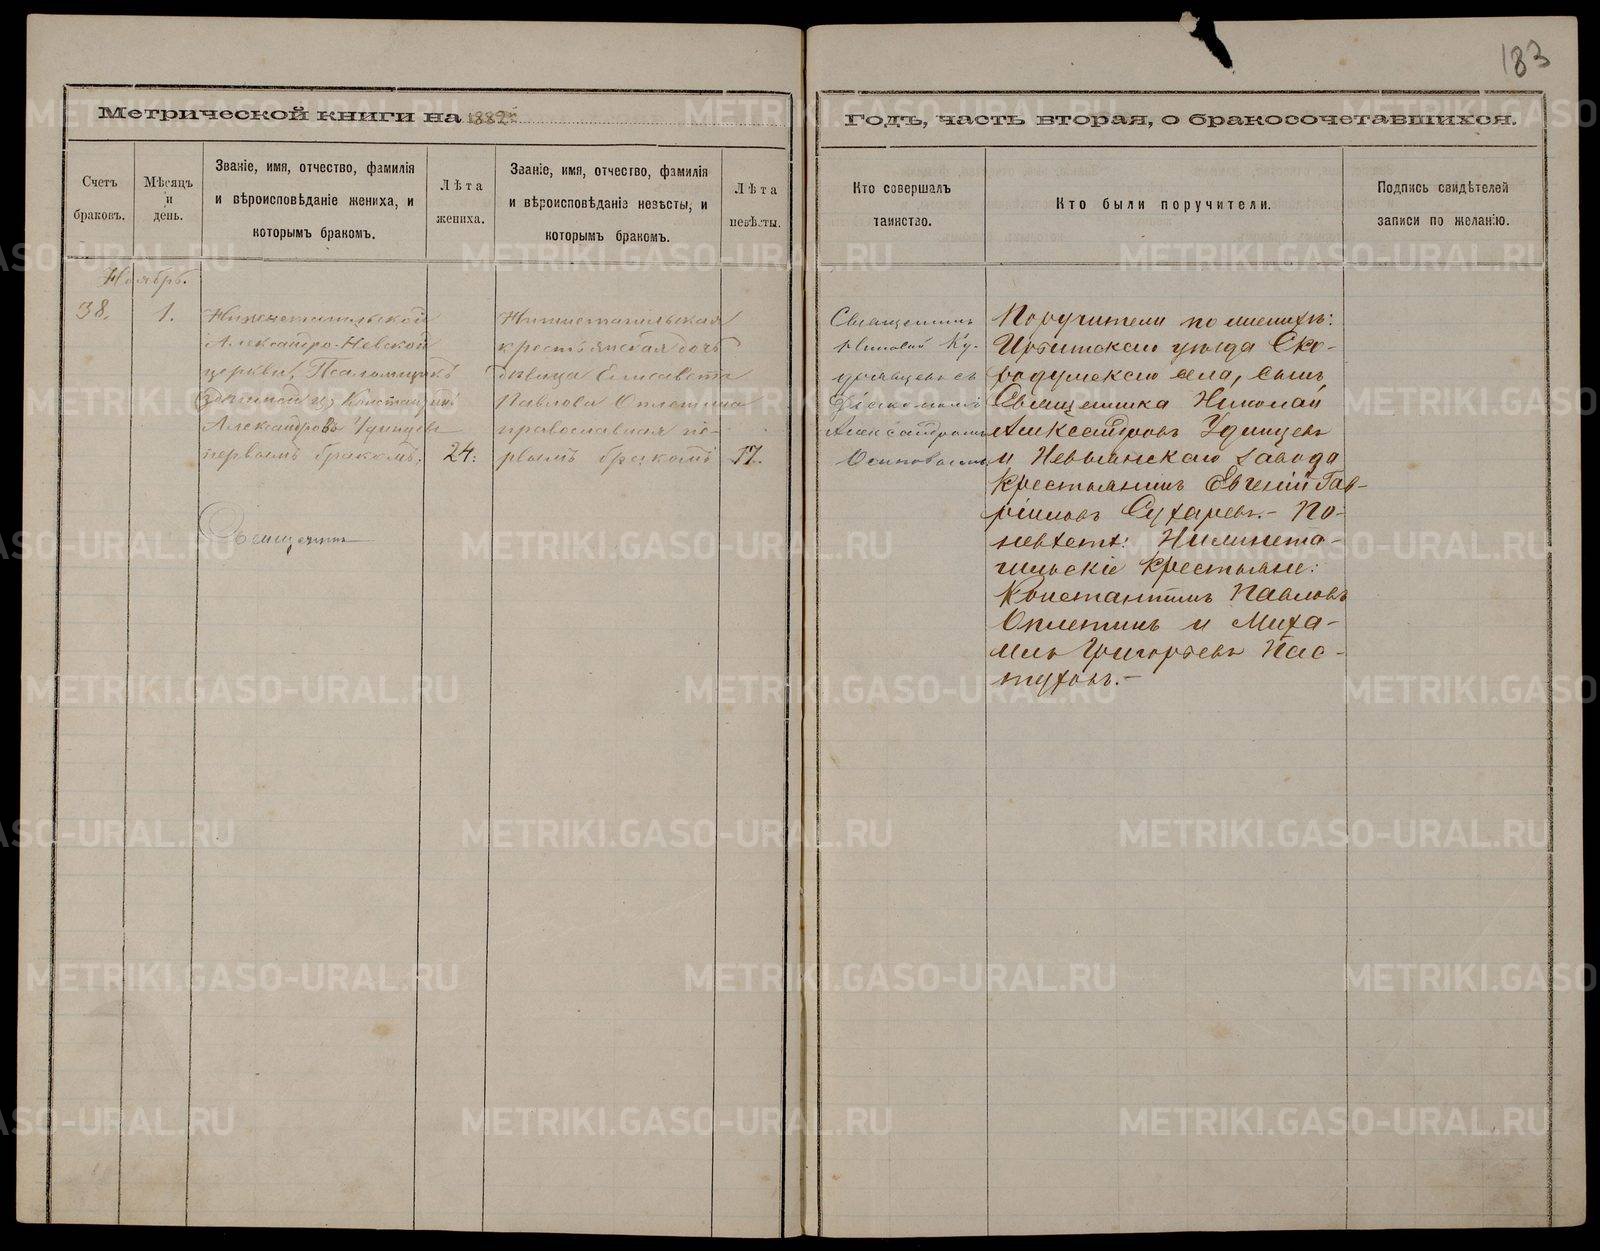 183
Метрической книги на 1882й
Годъ, часть вторая, о бракосочетавшихся.
Счетъ браковъ.
Мѣсяцъ и день.
Званіе, имя, отчество, фамилія
и вѣроисповѣданіе жениха, и
которымъ бракомъ.
Лѣта
жениха.
Званіе, имя, отчество, фамилія
и вѣроисповѣданіе невѣсты, и
которымъ бракомъ.
Лѣта
невѣсты.
Кто совершалъ
таинство.
Кто были поручители.
Подпись свидѣтелей
записи по желанію.
Ноябрь.
38.
1.
Нижнетагильской
Александро-Невской
церкви, Псаломщикъ
Константинъ
Александровъ Удинцевъ
первымъ бракомъ,
24.
Нижнетагильская
крестьянская дочь
дѣвица Елисавета
Павлова Оплетина
православная пе-
рвымъ бракомъ
17.
Священникъ
Священникъ
Николай Ку-
дрявцевъ съ
Діакономъ
Александромъ
Осиповымъ
Поручители по женихѣ:
Ирбитскаго уѣзда Ско-
родумскаго села, сынъ
Священника Николай
Александровъ Удинцевъ
и Невьянскаго завода
крестьянинъ Евгеній Гав-
ріиловъ Сухаревъ.- По
невѣстѣ: Нижнета-
гильскіе крестьяне:
Константинъ Павловъ
Оплетинъ и Миха-
илъ Григорьевъ Пас-
туховъ.-
METRIKI.GASO-URAL.RU